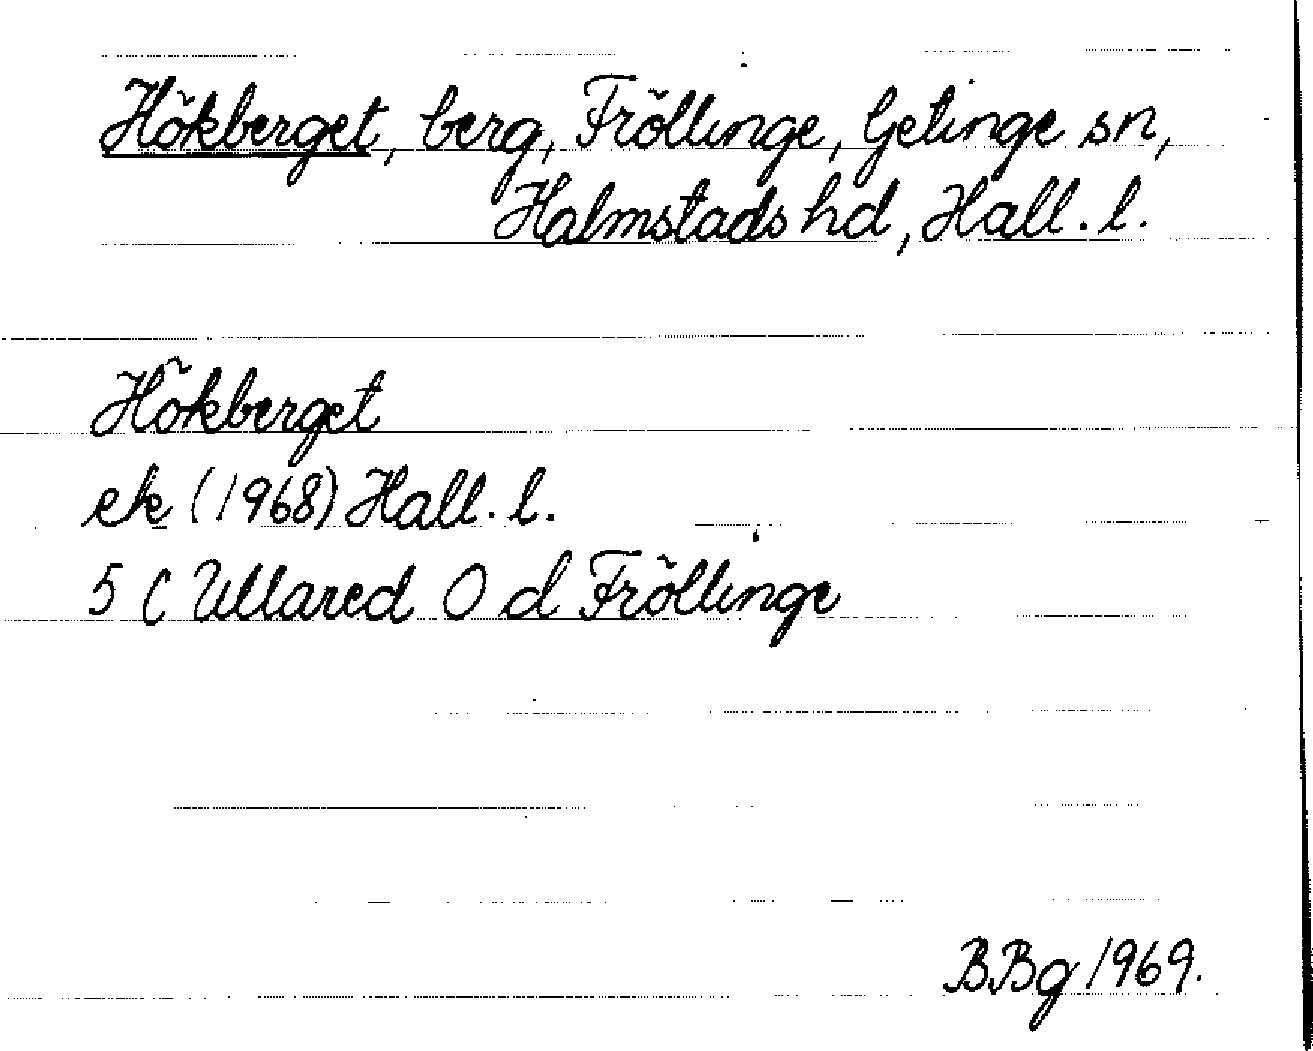 Hökberget, berg, Fröllinge, Getinge sn,
Halmstads hd, Hall. l.
Hökberget
ek (1968) Hall. l.
5 C Ullared O d Fröllinge
BBg 1969.